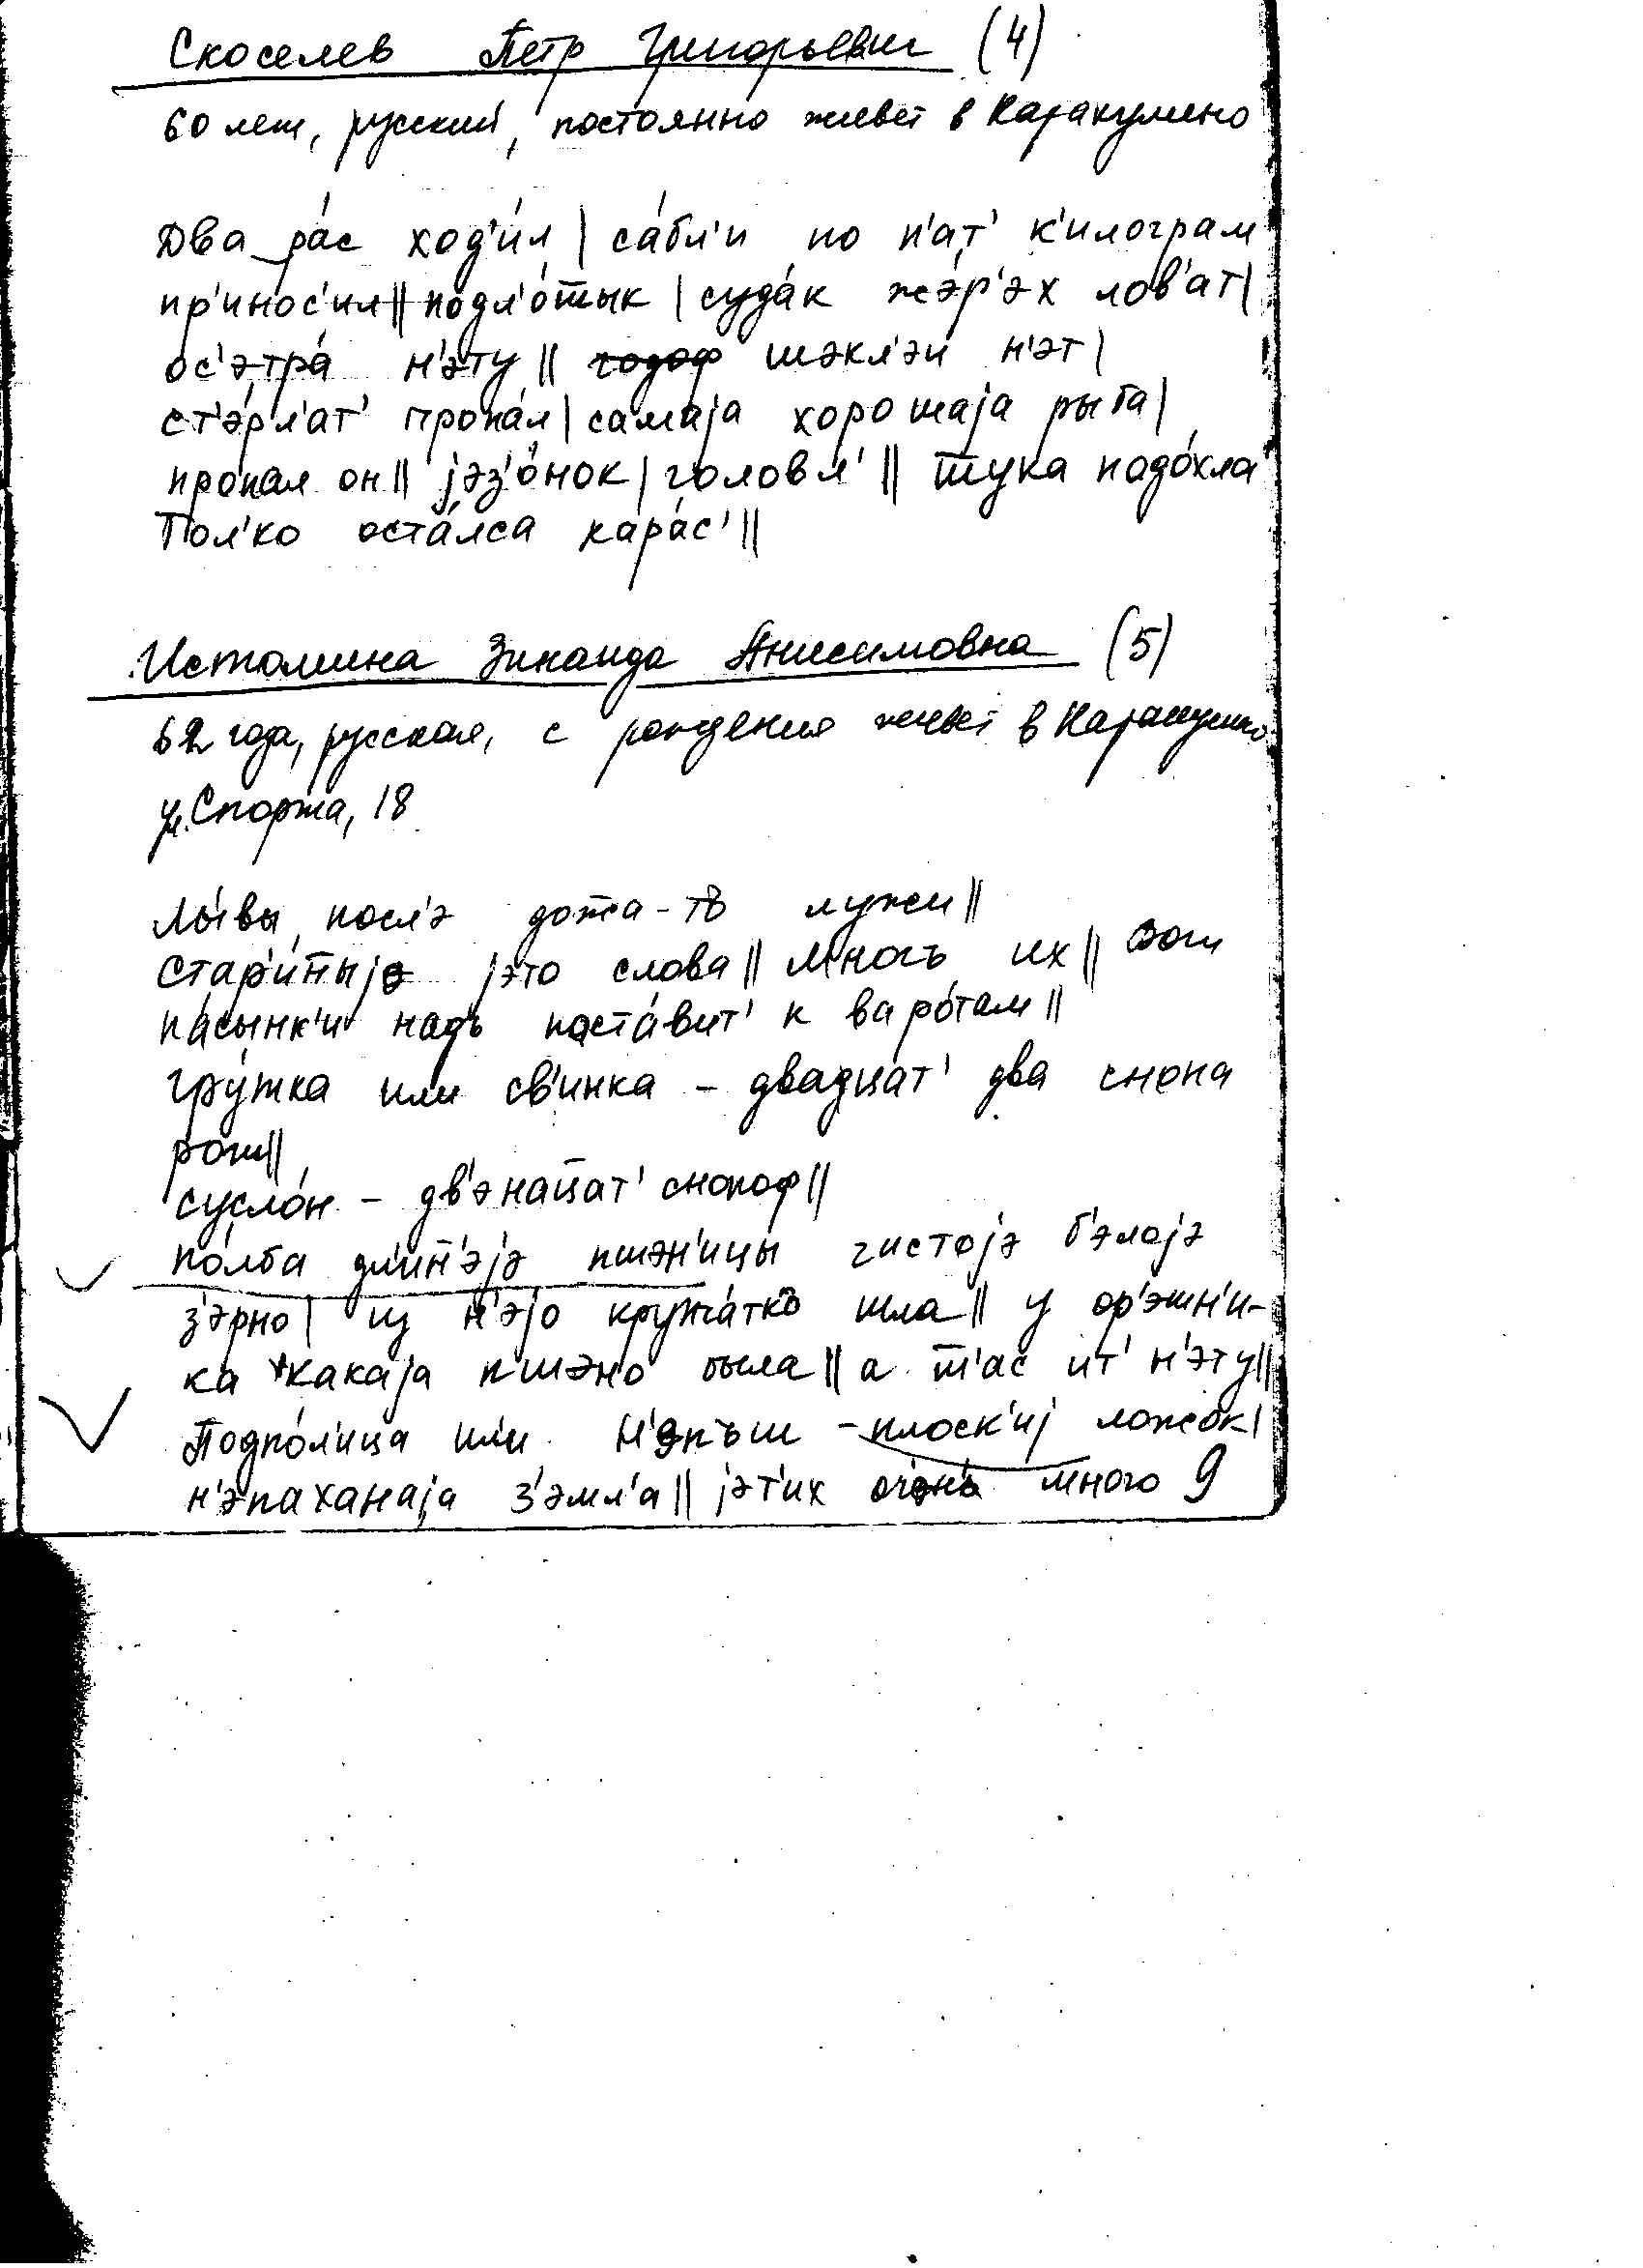 Скоселев Петр Григорьевич (4)
60 лет, русский, постоянно живет в Каракулино
Два ра́с ход'и́л | са́бл'и по п'ат' к'илограм
пр'инос'ил || подл'о́шык | суда́к жэ́р'эх лов'ат |
ос'этра́ н'эту || шэкл'эи н'эт |
ст'э́рл'ат' пропа́л | самаjа хорошаjа рыба |
пропал он || jэз'о́нок | головл' || щука падо́хла
Тол'ко оста́лса кара́с' ||
Истомина Зинаида Анисимовна (5)
62 года, русская, с рождения живет в Каракулино
ул. Споржа, 18
Лы́вы посл'э дожа-тъ лужи ||
стар'ин̄ыjэ jэто слова || Многъ их ||
па́сынк'и надъ поста́вит' к варо́там ||
гру́жка или св'инка – двадцат' два снопа
рож ||
сусло́н – дв'энац̄ат' снопоф ||
по́лба дл'ин̄'эjэ пшэн'ицы чистоjэ б'элоjэ
з'эрно | из н'эjо крупча́ткъ шла || у ор'эшн'и-
ка какаjа пшэно была || а щ'ас ит' н'эту ||
Подпо́л'ица или н'эпъш – плоск'иj ложок |
н'эпаханаjа з'эмл'а || jэт'их оч'эн' много 9